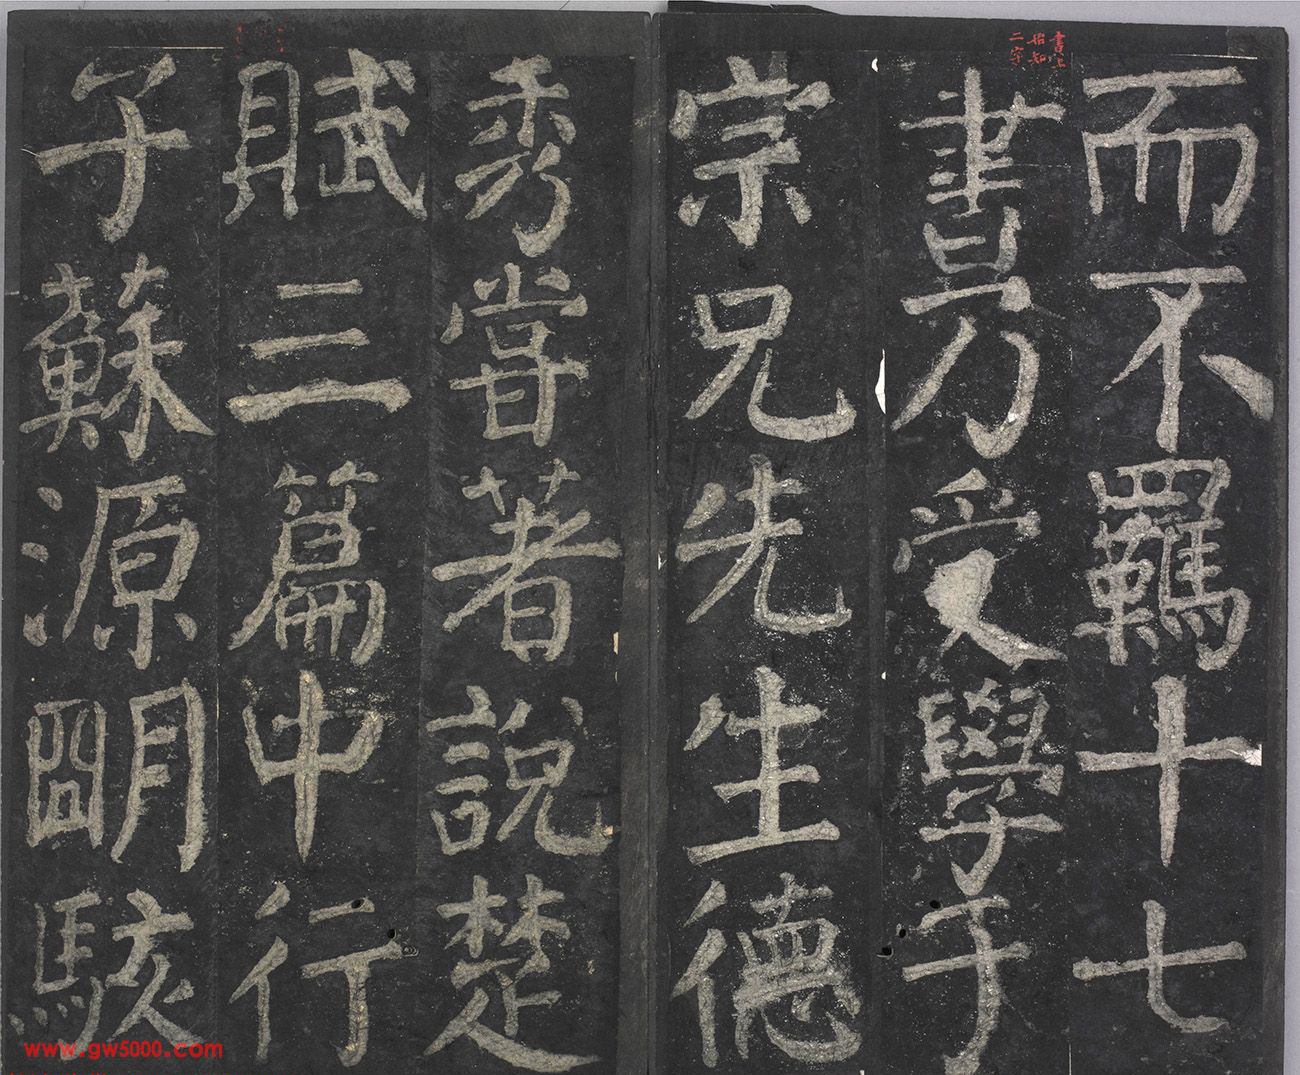 書上
始知
二字
而不羈十七
書乃受學于
宗兄先生德
秀嘗著說楚
賦三篇中行
子蘇源朙駭
www.gw5000.com